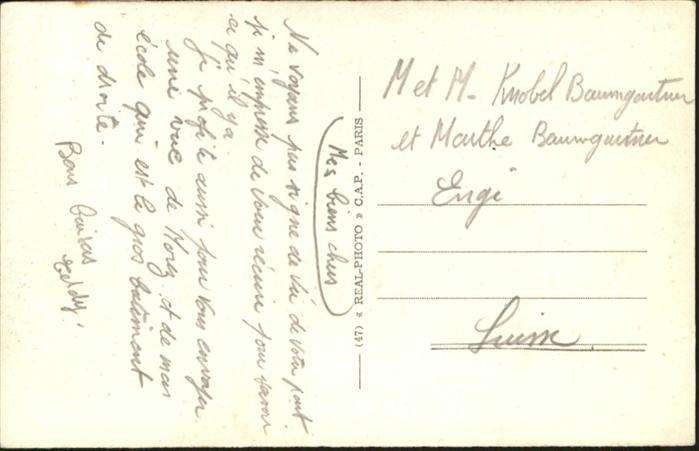 Mes biens chers
Ne voyant pas signe de vie de votre part
je m'empresse de vous écrire pour savoir
ce qu'il y a
Je profite aussi pour vous envoyer
une vue de Morez et de mon
école qui est le gros batiment
de droite.
Bons baisers
(47) REAL-PHOTO C.A.P. - PARIS
M et M. Knobel Baumgartner
et Marthe Baumgartner
Engi
Suisse